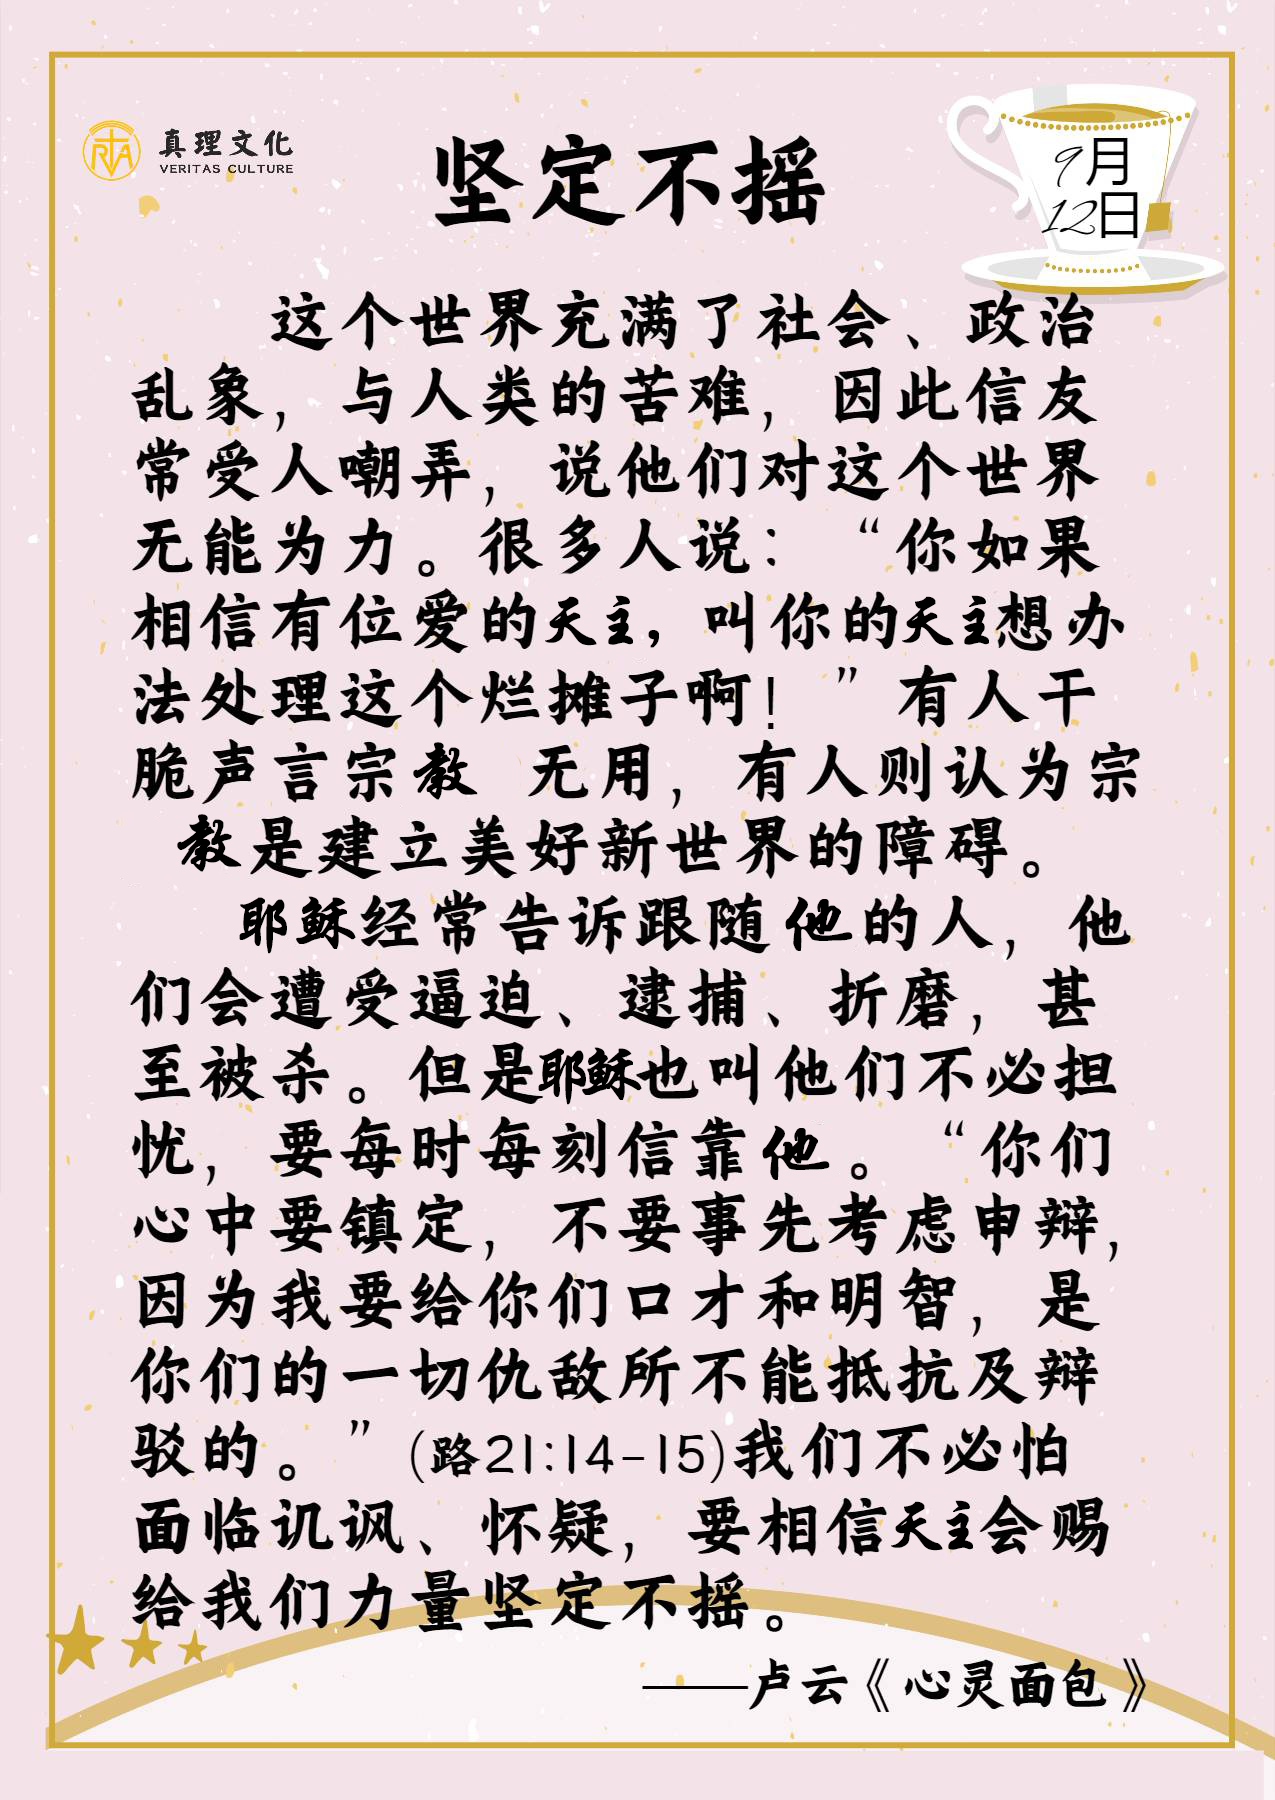 真理文化
VERITAS CULTURE
坚定不摇
9月
12日
这个世界充满了社会、政治
乱象，与人类的苦难，因此信友
常受人嘲弄，说他们对这个世界
无能为力。很多人说：“你如果
相信有位爱的天主，叫你的天主想办
法处理这个烂摊子啊！”有人干
脆声言宗教 无用，有人则认为宗
教是建立美好新世界的障碍。
耶稣经常告诉跟随他的人，他
们会遭受逼迫、逮捕、折磨，甚
至被杀。但是耶稣也叫他们不必担
忧，要每时每刻信靠他。“你们
心中要镇定，不要事先考虑申辩，
因为我要给你们口才和明智，是
你们的一切仇敌所不能抵抗及辩
驳的。”(路21:14-15)我们不必怕
面临讥讽、怀疑，要相信天主会赐
给我们力量坚定不摇。
——卢云《心灵面包》